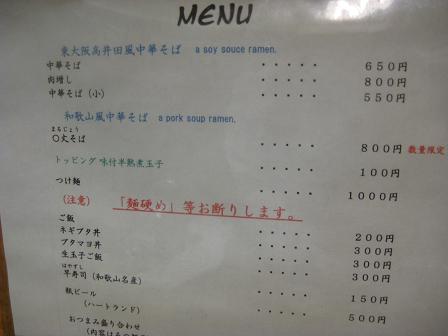 MENU
東大阪高井田風中華そば a soy souce ramen.
中華そば ・・・・・ 650円
肉増し ・・・・・ 800円
中華そば（小） ・・・・・ 550円
和歌山風中華そば a pork soup ramen.
まるじょう
〇丈そば ・・・・・ 800円 数量限定
トッピング 味付半熟煮玉子 ・・・・・ 100円
つけ麺 ・・・・・ 1000円
（注意） 「麺硬め」等お断りします。
ご飯 ・・・・・ 200円
ネギブタ丼 ・・・・・ 300円
ブタマヨ丼 ・・・・・ 300円
生玉子ご飯 ・・・・・ 300円
はやずし
早寿司（和歌山名産） ・・・・・ 150円
瓶ビール ・・・・・ 500円
（ハートランド）
おつまみ盛り合わせ